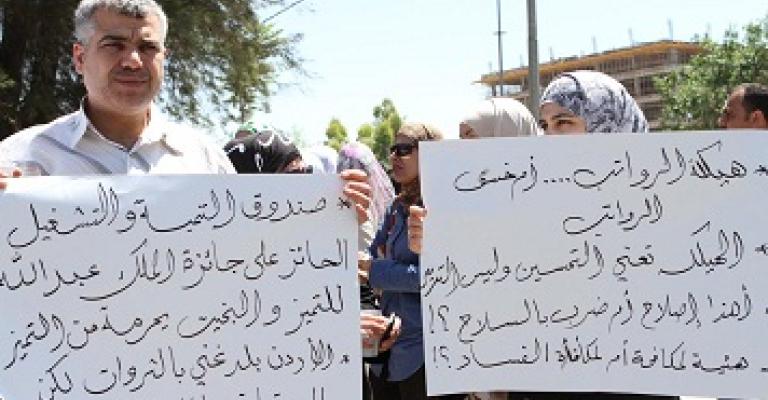 * هيكلة الرواتب.... أم خسف
الرواتب
* الهيكلة تعني التحسين وليس
* أهذا إصلاح أم ضرب بالسلاح ؟!
* هيئة لمكافحة أم لمكافأة الفساد ؟!
* صندوق التنمية والتشغيل
الحائز على جائزة الملك عبدالله
للتميز والبخيت يحرمه من التميز
* الأردن بلد غني بالثروات لكن